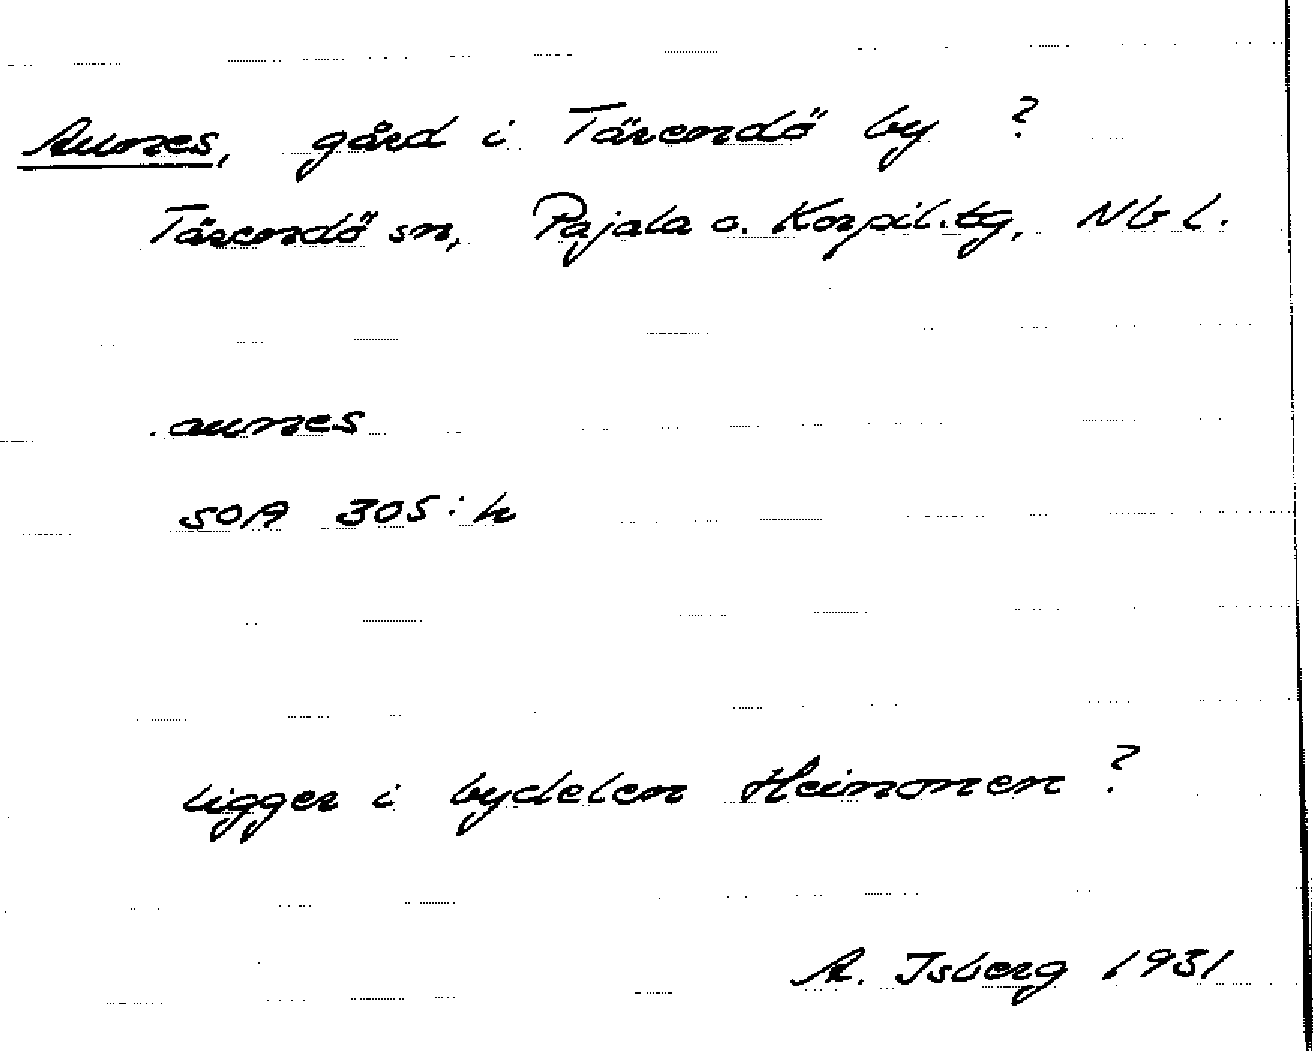 Aunes, gård i Tärendö by ?
Tärendö sn, Pajala o. Korpil. tg, Nb l.
aunes
SOA 305:h
ligger i bydelen Heinonen ?
A. Isberg 1931